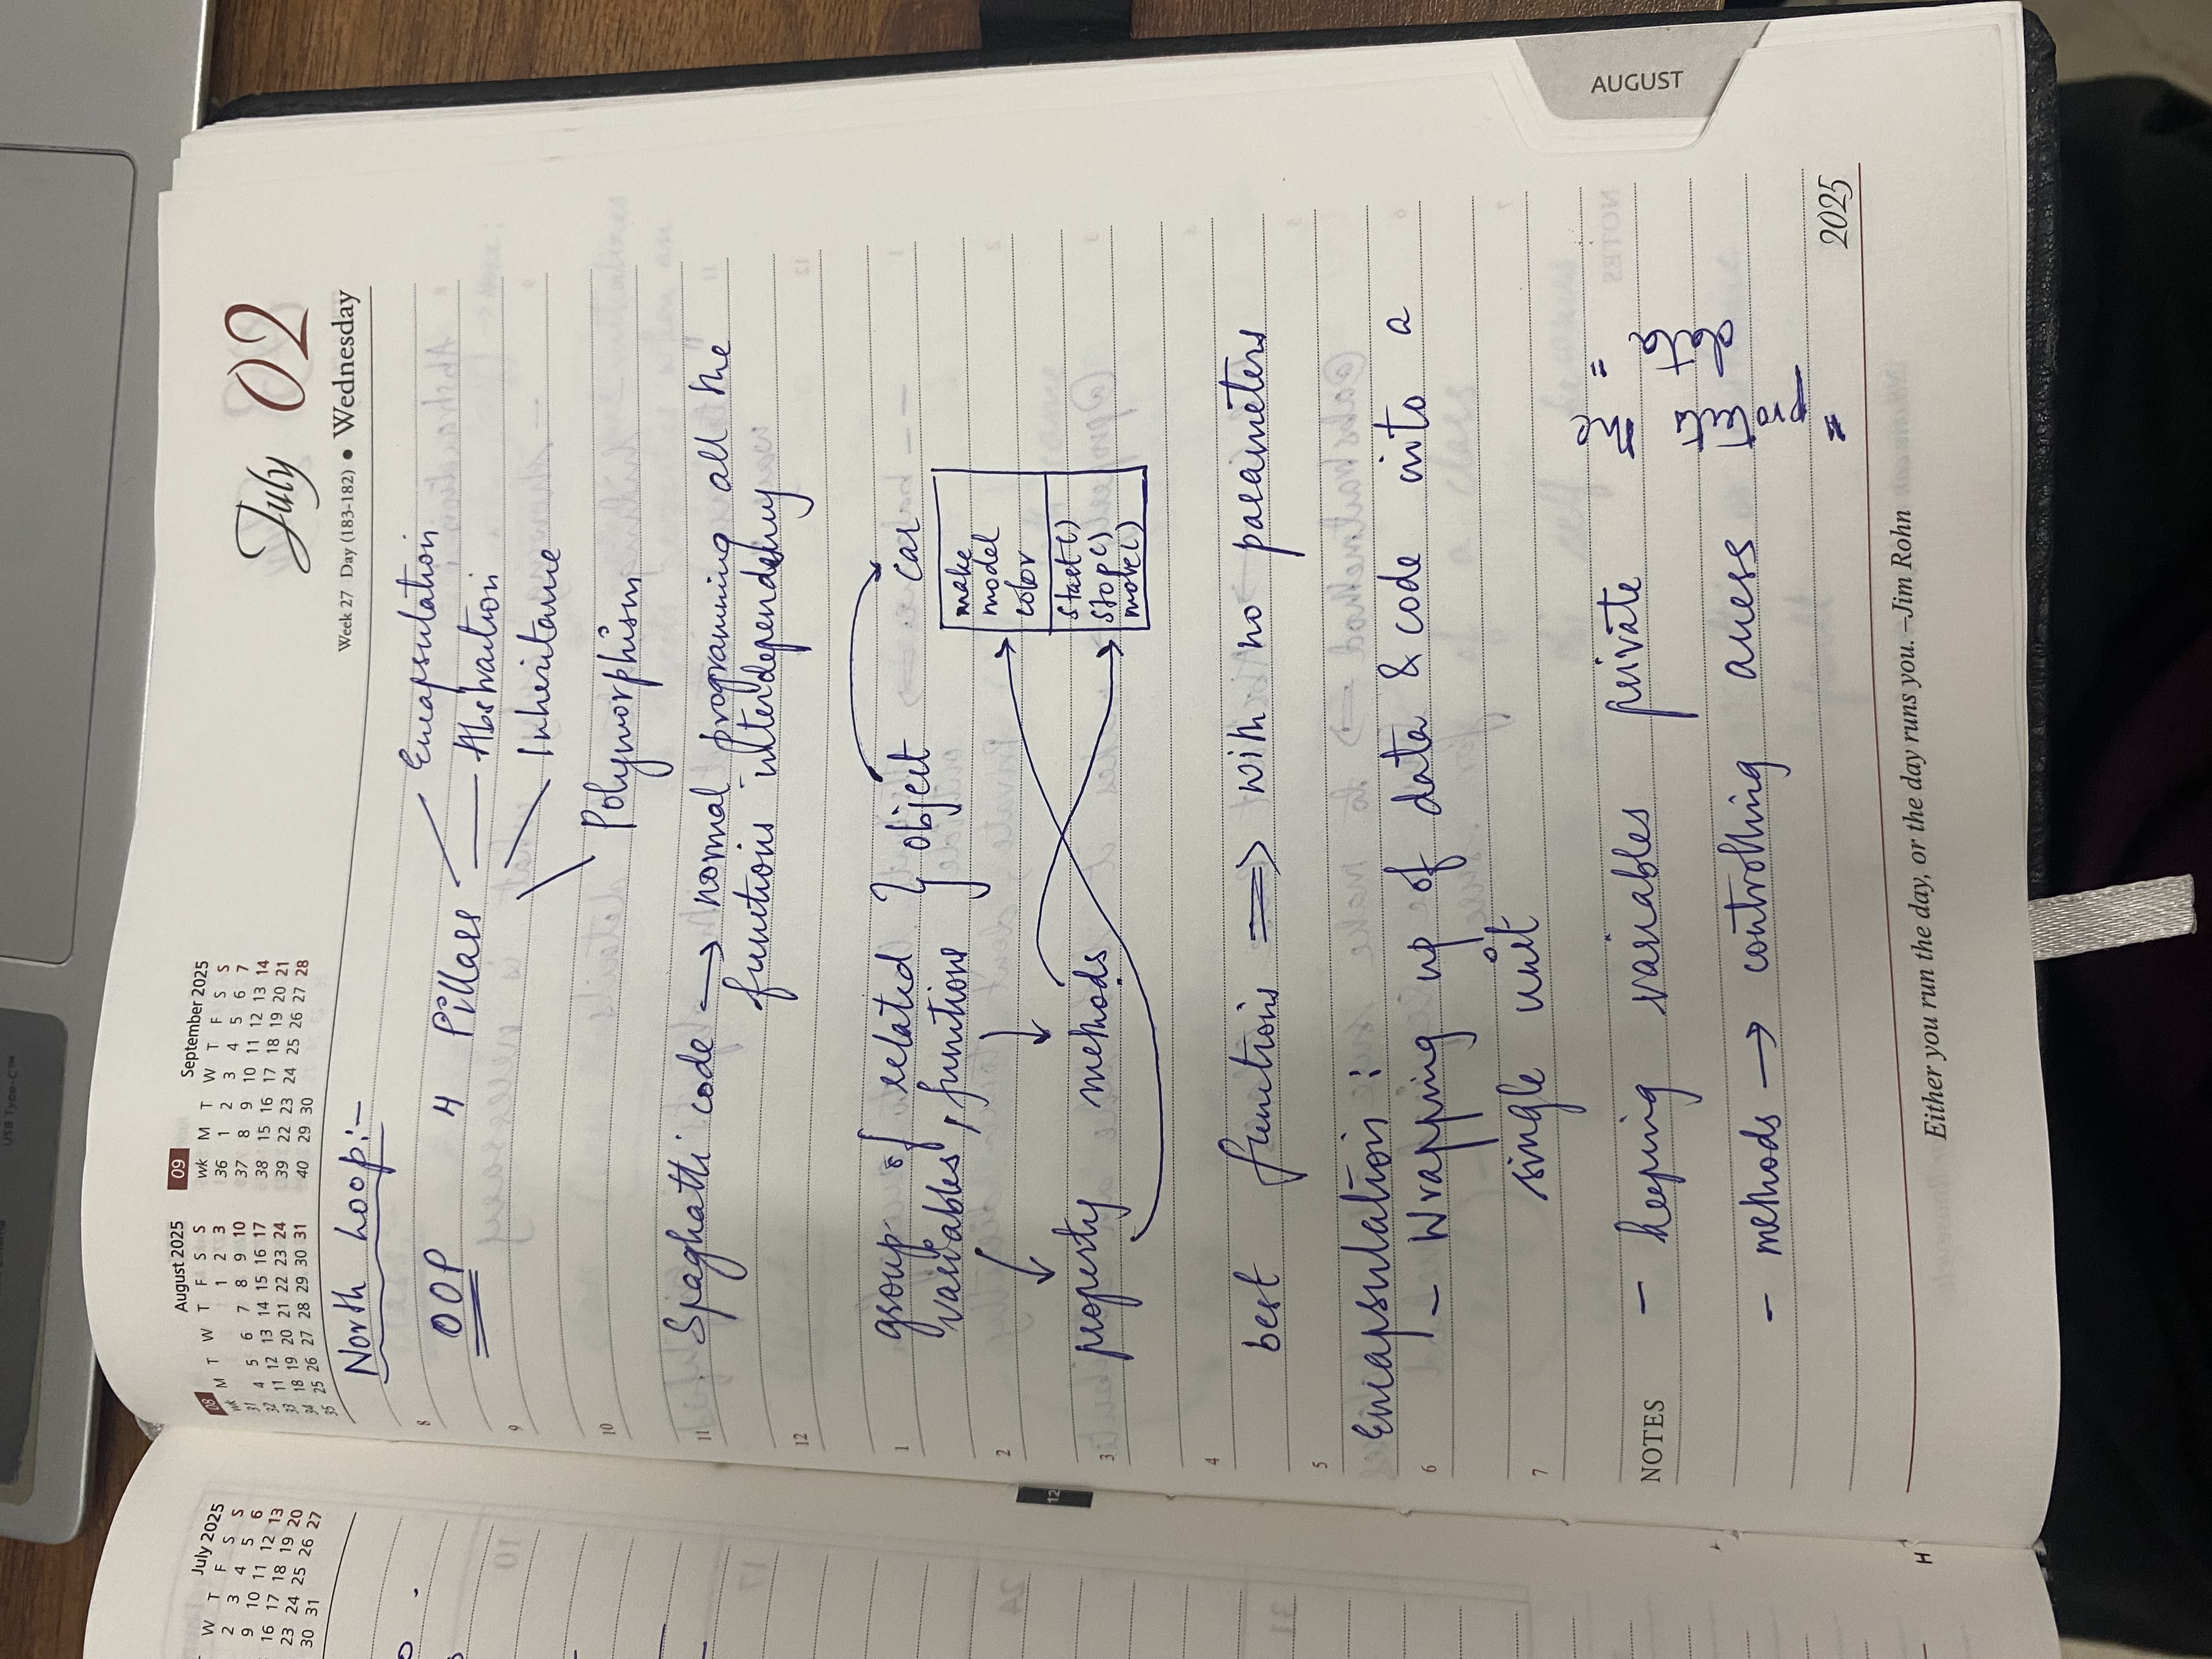 USB Type-C™
July 2025
W T F S S
2 3 4 5 6
9 10 11 12 13
16 17 18 19 20
23 24 25 26 27
30 31
08 August 2025
wk M T W T F S S
31 1 2 3
32 4 5 6 7 8 9 10
33 11 12 13 14 15 16 17
34 18 19 20 21 22 23 24
35 25 26 27 28 29 30 31
09 September 2025
wk M T W T F S S
36 1 2 3 4 5 6 7
37 8 9 10 11 12 13 14
38 15 16 17 18 19 20 21
39 22 23 24 25 26 27 28
40 29 30
July 02
Week 27 Day (183-182) • Wednesday
North Loop:-
8
OOP 4 Pillars
Encapsulation
Abstraction
9
Inheritance
10
Polymorphism
11 Spaghatti code → normal programming all the
functions interdependency
12
1 group of related } object car
variables, functions
make
2 model
color
3 property methods
start()
stop()
move()
4
best functions ⇒ with no parameters
5
Encapsulation :
6 - Wrapping up of data & code into a
7 single unit
NOTES - keeping variables private
- methods → controlling access
" protects the
data "
12
AUGUST
2025
Either you run the day, or the day runs you. –Jim Rohn
H